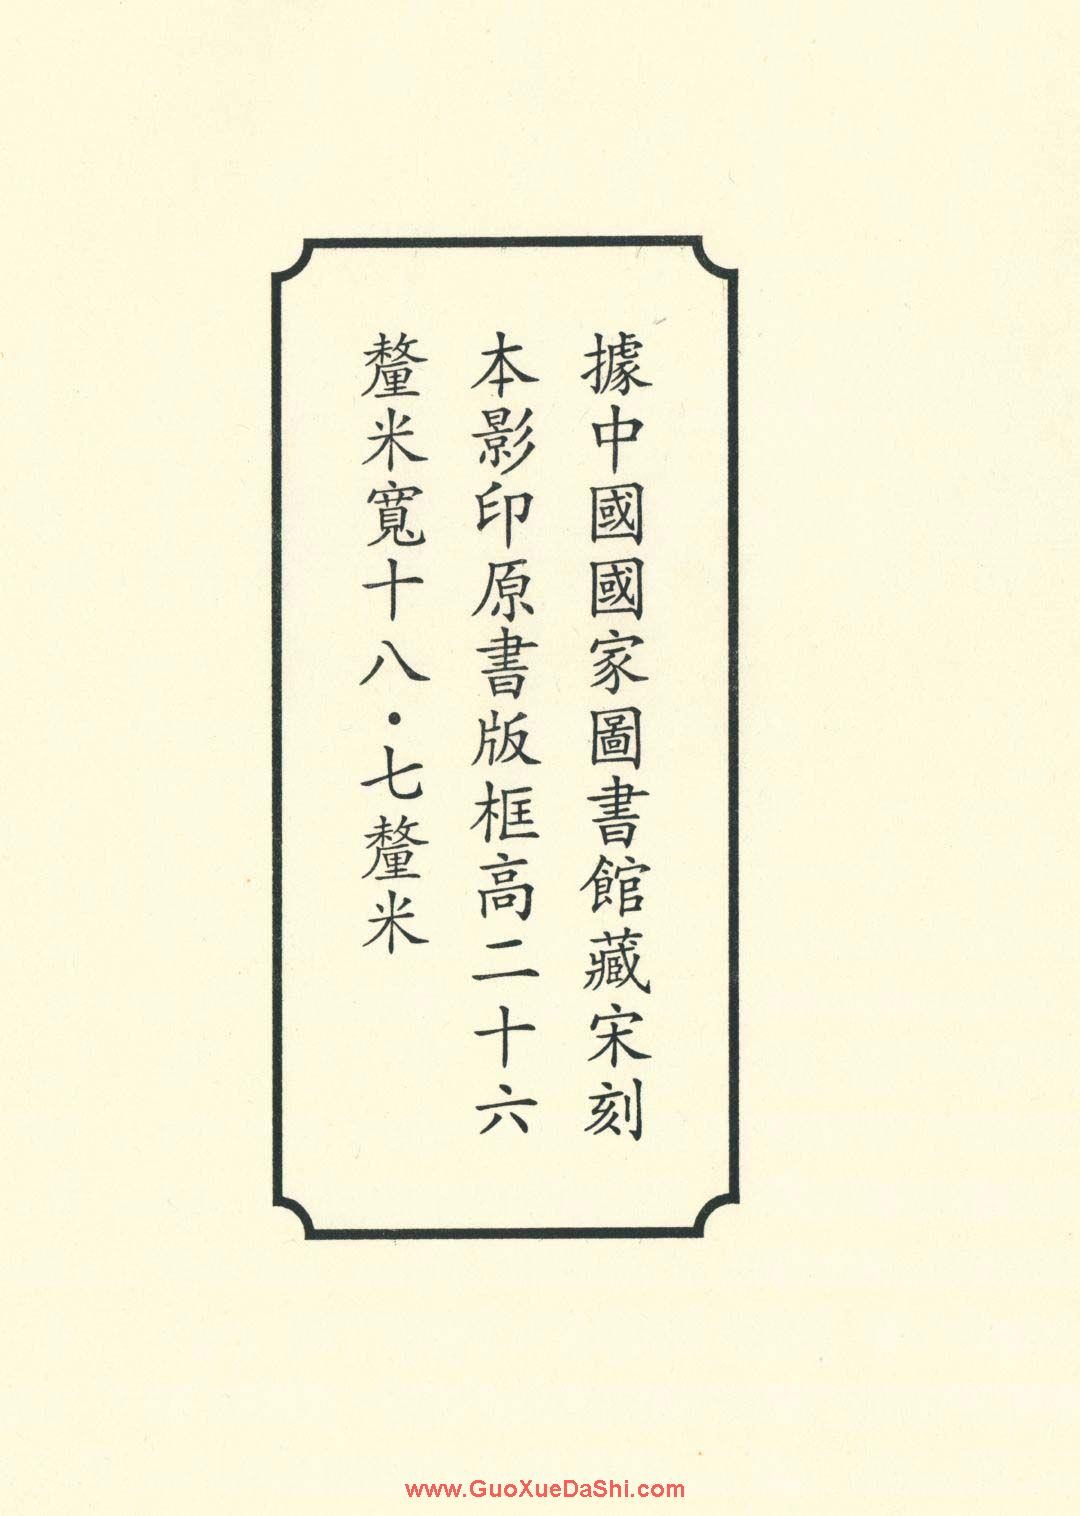 據中國國家圖書館藏宋刻
本影印原書版框高二十六
釐米寬十八·七釐米
www.GuoXueDaShi.com